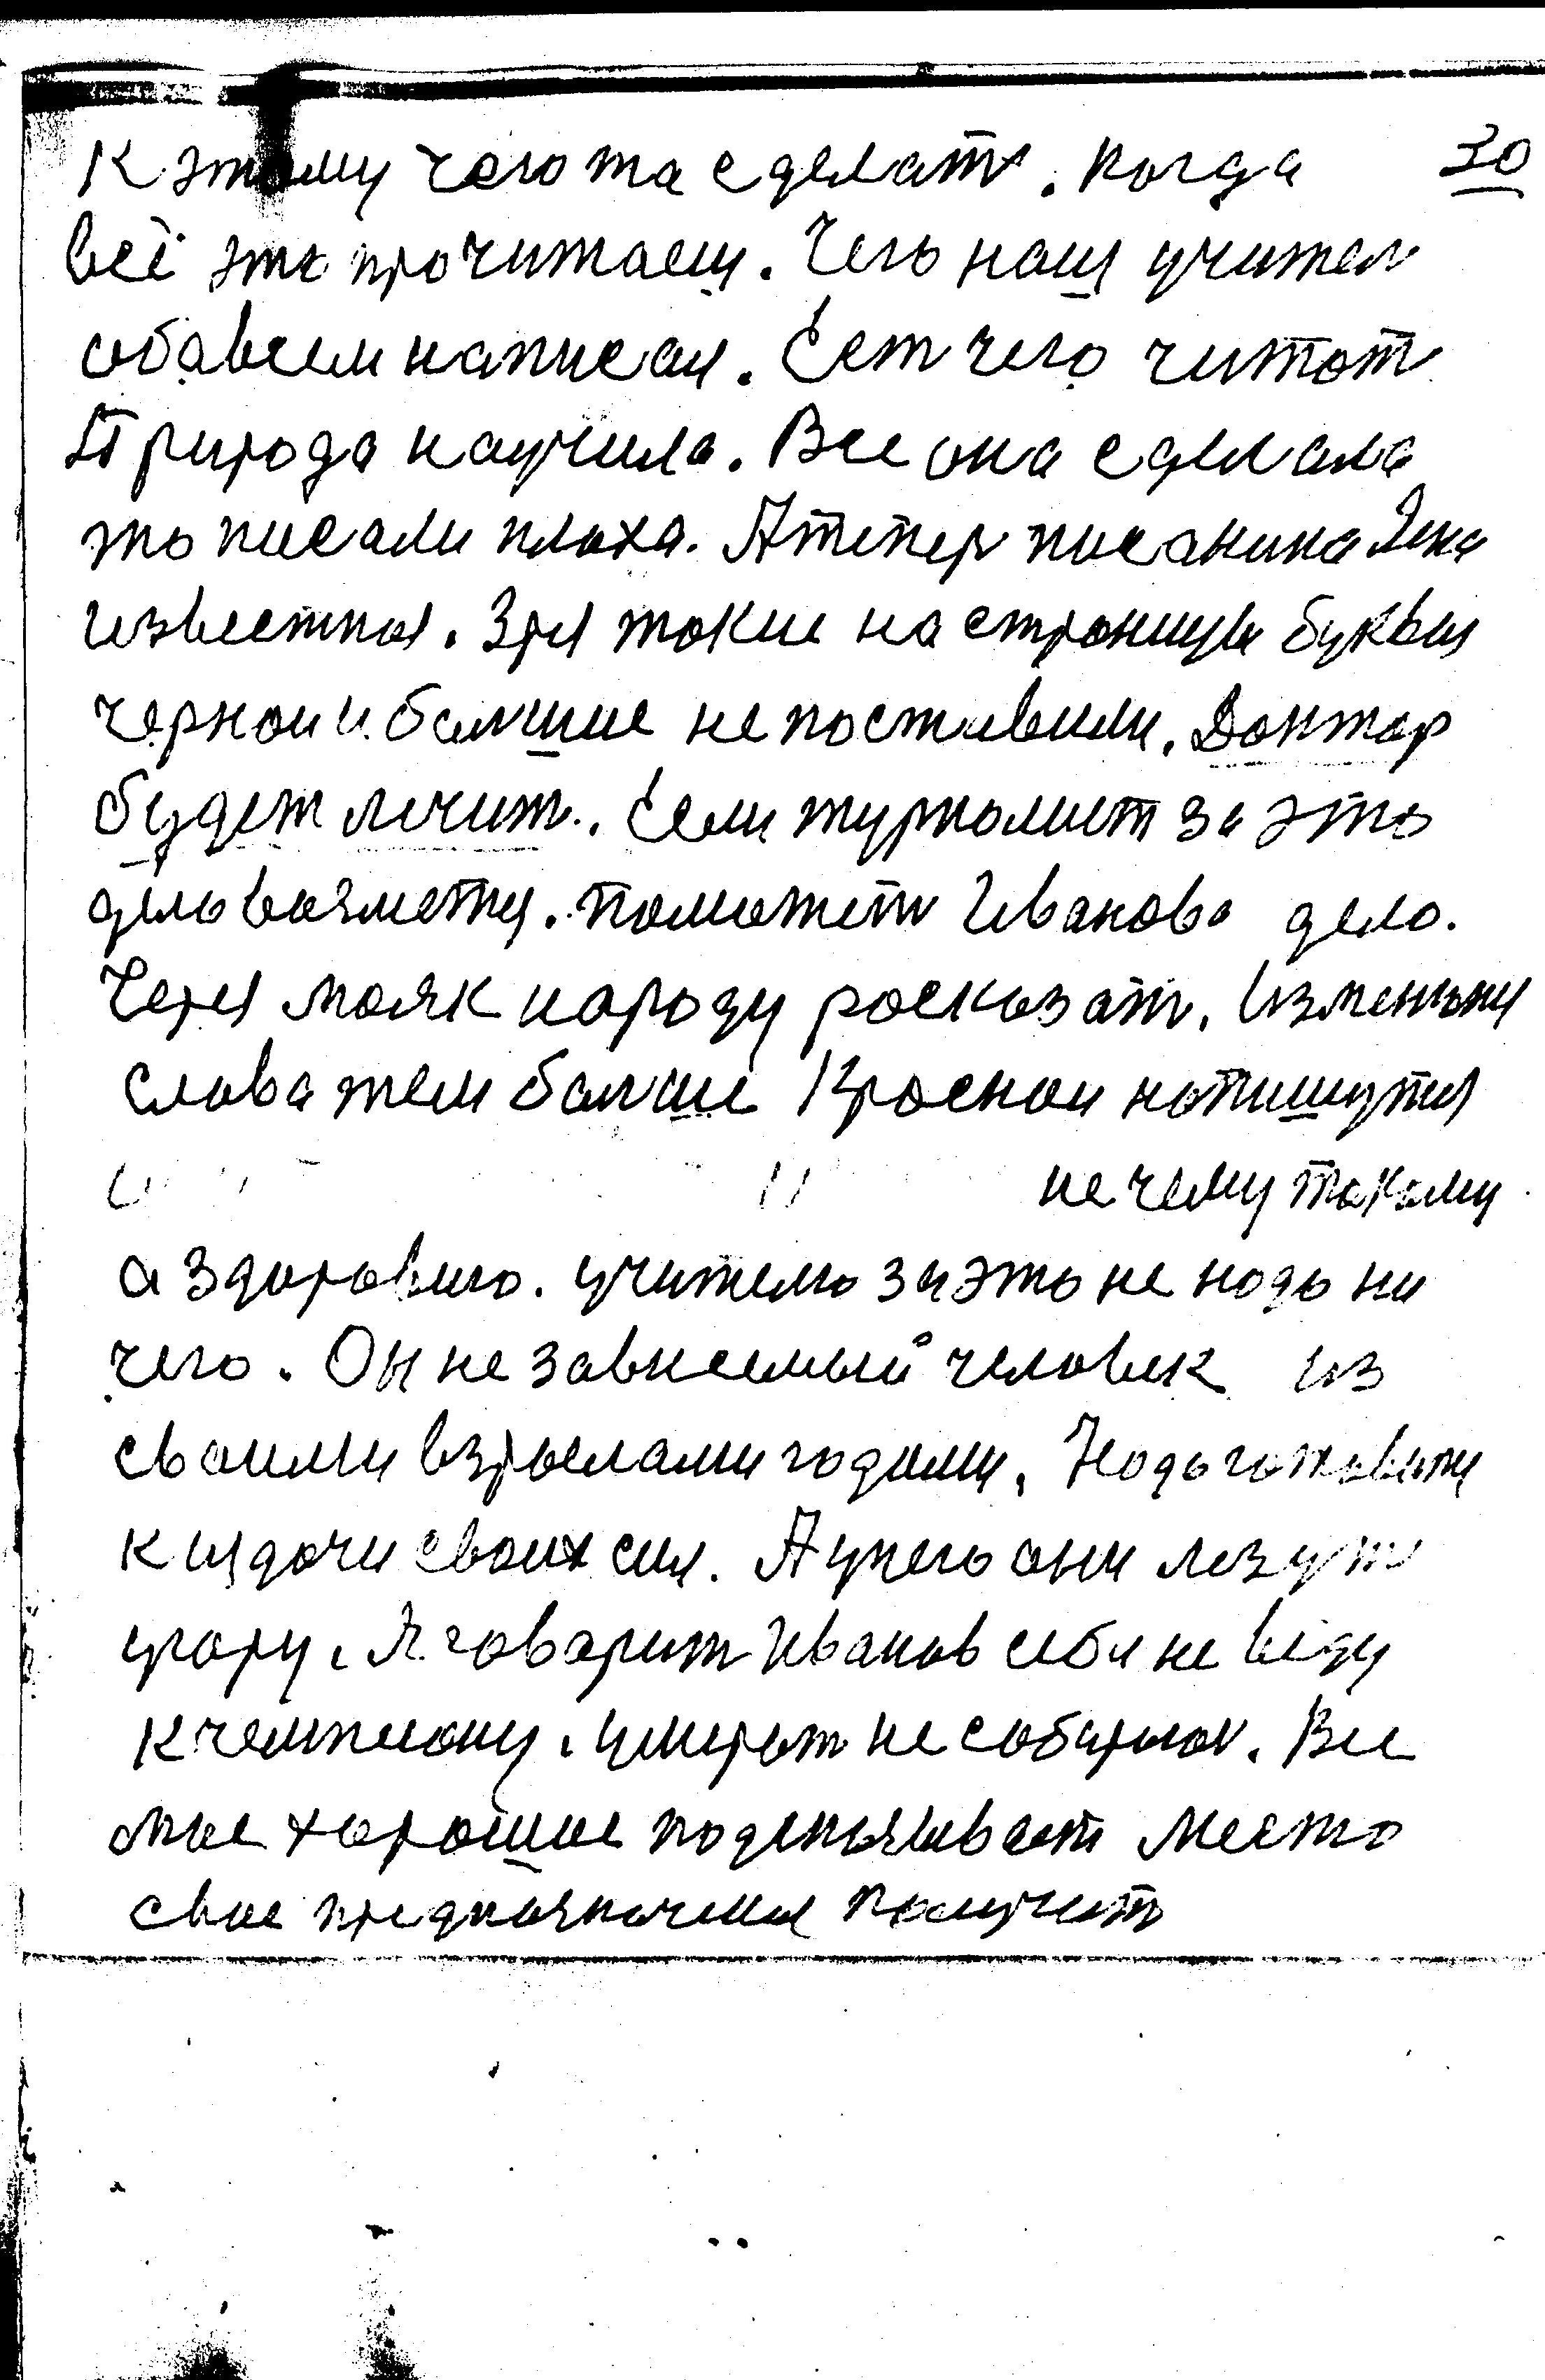 30
к этому чего та сделать. Когда
всё это прочитаеш. Чего наш учитель
обавсем написал. Есть чего читать
Природа научила. Все она сделала
то писали плоха. А тепер писанина
известная. Зря токие на страницы буквы
чернои и. балшие не поставили. Доктор
будет лечить. Если журналист за это
дело вазметця. поможеть Иванова дело.
Через маяк народу росказать.
слова тем балше Красной
не чему такому
а здоровию. учителю за это не надо ни
чего. Он не зависемый человек из
своими взрослами годами. Надо готовитця
к здачи своих сил. А у него они лезут
угору. Я говарит Иванов себя не веду
к чемпиону. умерать не собираюс. Все
мое хорошое место
свое предназначения получить